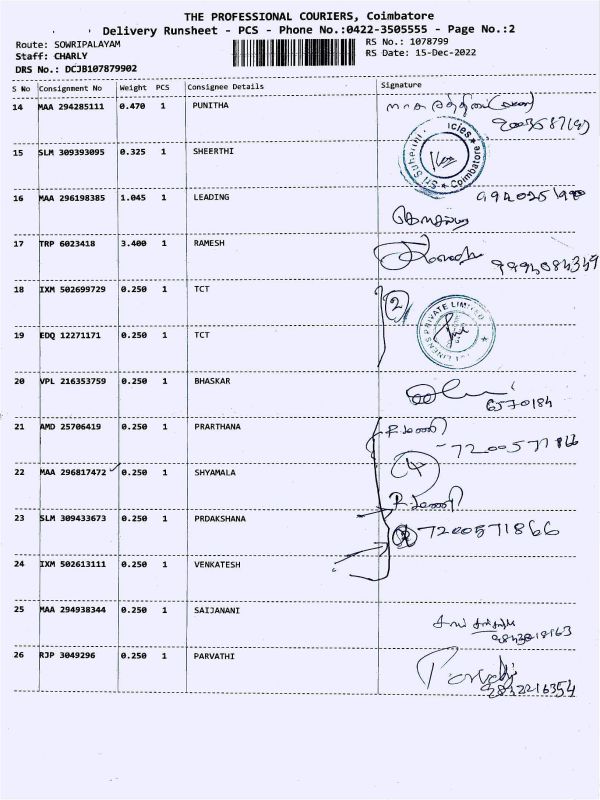 THE PROFESSIONAL COURIERS, Coimbatore
Delivery Runsheet - PCS - Phone No.:0422-3505555 - Page No.:2
Route: SOWRIPALAYAM
RS No.: 1078799
Staff: CHARLY
RS Date: 15-Dec-2022
DRS No.: DCJB107879902
S No Consignment No Weight PCS Consignee Details Signature
14 MAA 294285111 0.470 1 PUNITHA
15 SLM 309393095 0.325 1 SHEERTHI
Coimbatore
16 MAA 296198385 1.045 1 LEADING
17 TRP 6023418 3.400 1 RAMESH
18 IXM 502699729 0.250 1 TCT 2
LINENS PRIVATE LIMITED
19 EDQ 12271171 0.250 1 TCT
20 VPL 216353759 0.250 1 BHASKAR
6570184
21 AMD 25706419 0.250 1 PRARTHANA
7200571866
22 MAA 296817472 0.250 1 SHYAMALA 4
23 SLM 309433673 0.250 1 PRDAKSHANA
7200571866
24 IXM 502613111 0.250 1 VENKATESH
25 MAA 294938344 0.250 1 SAIJANANI
26 RJP 3049296 0.250 1 PARVATHI